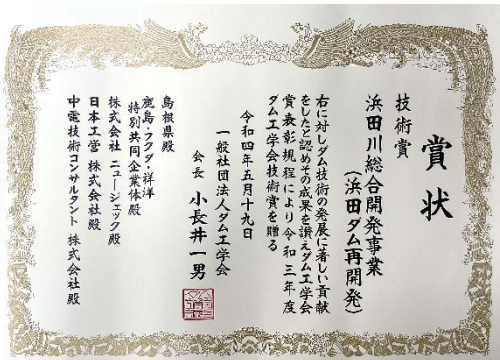 賞状
技術賞
浜田川総合開発事業
(浜田ダム再開発)
右に対しダム技術の発展に著しい貢献
をしたと認めその成果を讃えダム工学会
賞表彰規程により令和三年度
ダム工学会技術賞を贈る
令和四年五月十九日
一般社団法人ダム工学会
会長 小長井一男
島根県殿
鹿島・フクダ・祥洋
特別共同企業体殿
株式会社 ニュージェック殿
日本工営 株式会社殿
中電技術コンサルタント 株式会社殿